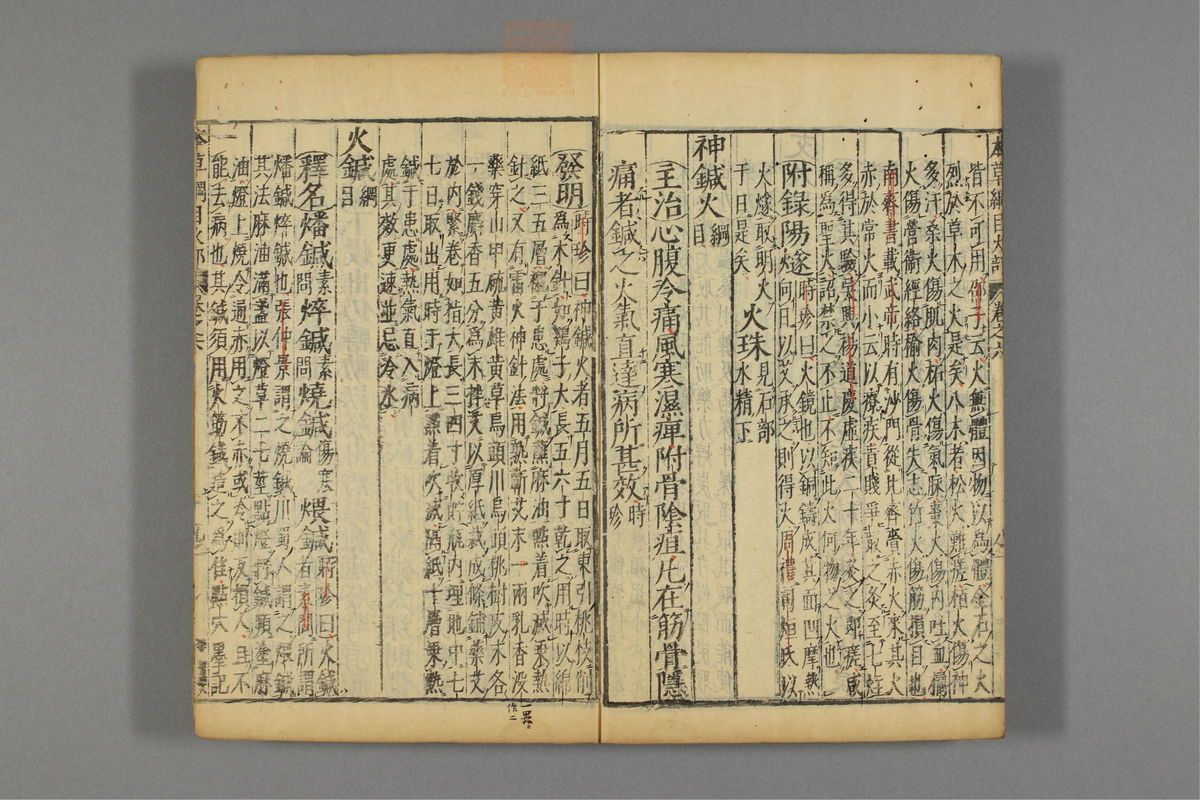 本草綱目火部 卷之六
皆不可用邵子云火無體因物以為體金石之火
烈於草木之火是矣八木者松火難瘥柏火傷神
多汗桑火傷肌肉柘火傷氣脉棗火傷內吐血橘
火傷營衛經絡榆火傷骨失志竹火傷筋損目也
南齊書載武帝時有沙門從北齊齎赤火來其火
赤於常火而小云以療疾貴賤爭取之灸至七炷
多得其驗吳興楊道慶虛疾二十年灸即瘥咸
稱為聖火詔禁之不止不知此火何物之火也
附錄陽燧時珍曰火鏡也以銅鑄成其面凹摩熱
向日以艾承之則得火周禮司烜氏以
火燧取明火 火珠見石部
于日是矣 水精下
神鍼火綱目
主治心腹冷痛風寒濕痺附骨陰疽凡在筋骨隱
痛者鍼之火氣直達病所甚效時珍
發明時珍曰神鍼火者五月五日取東引桃枝削
為木針如雞子大長五六寸乾之用時以綿
紙三五層襯于患處將鍼蘸麻油點着吹滅乘熱
針之又有雷火神針法用熟蘄艾末一兩乳香没
藥穿山甲硫黄雄黄草烏頭川烏頭桃樹皮末各
一錢麝香五分為末拌艾以厚紙裁成條鋪藥艾
於內緊卷如指大長三四寸收貯瓶內埋地中七
七日取出用時于燈上點着吹滅隔紙十層乘熱
鍼于患處熱氣直入病
處其效更速並忌冷水
火鍼綱目
釋名燔鍼素問焠鍼素問燒鍼傷寒論煨鍼時珍曰火鍼
者素問所謂
燔鍼焠鍼也張仲景謂之燒鍼川蜀人謂之煨鍼
其法麻油滿盞以燈草二七莖點燈將鍼頻塗麻
油燈上燒令通赤用之不赤或冷則反損人且不
能去病也其鍼須用火筯鐵造之為佳點穴墨記
本草綱目火部 卷之六
一點作二